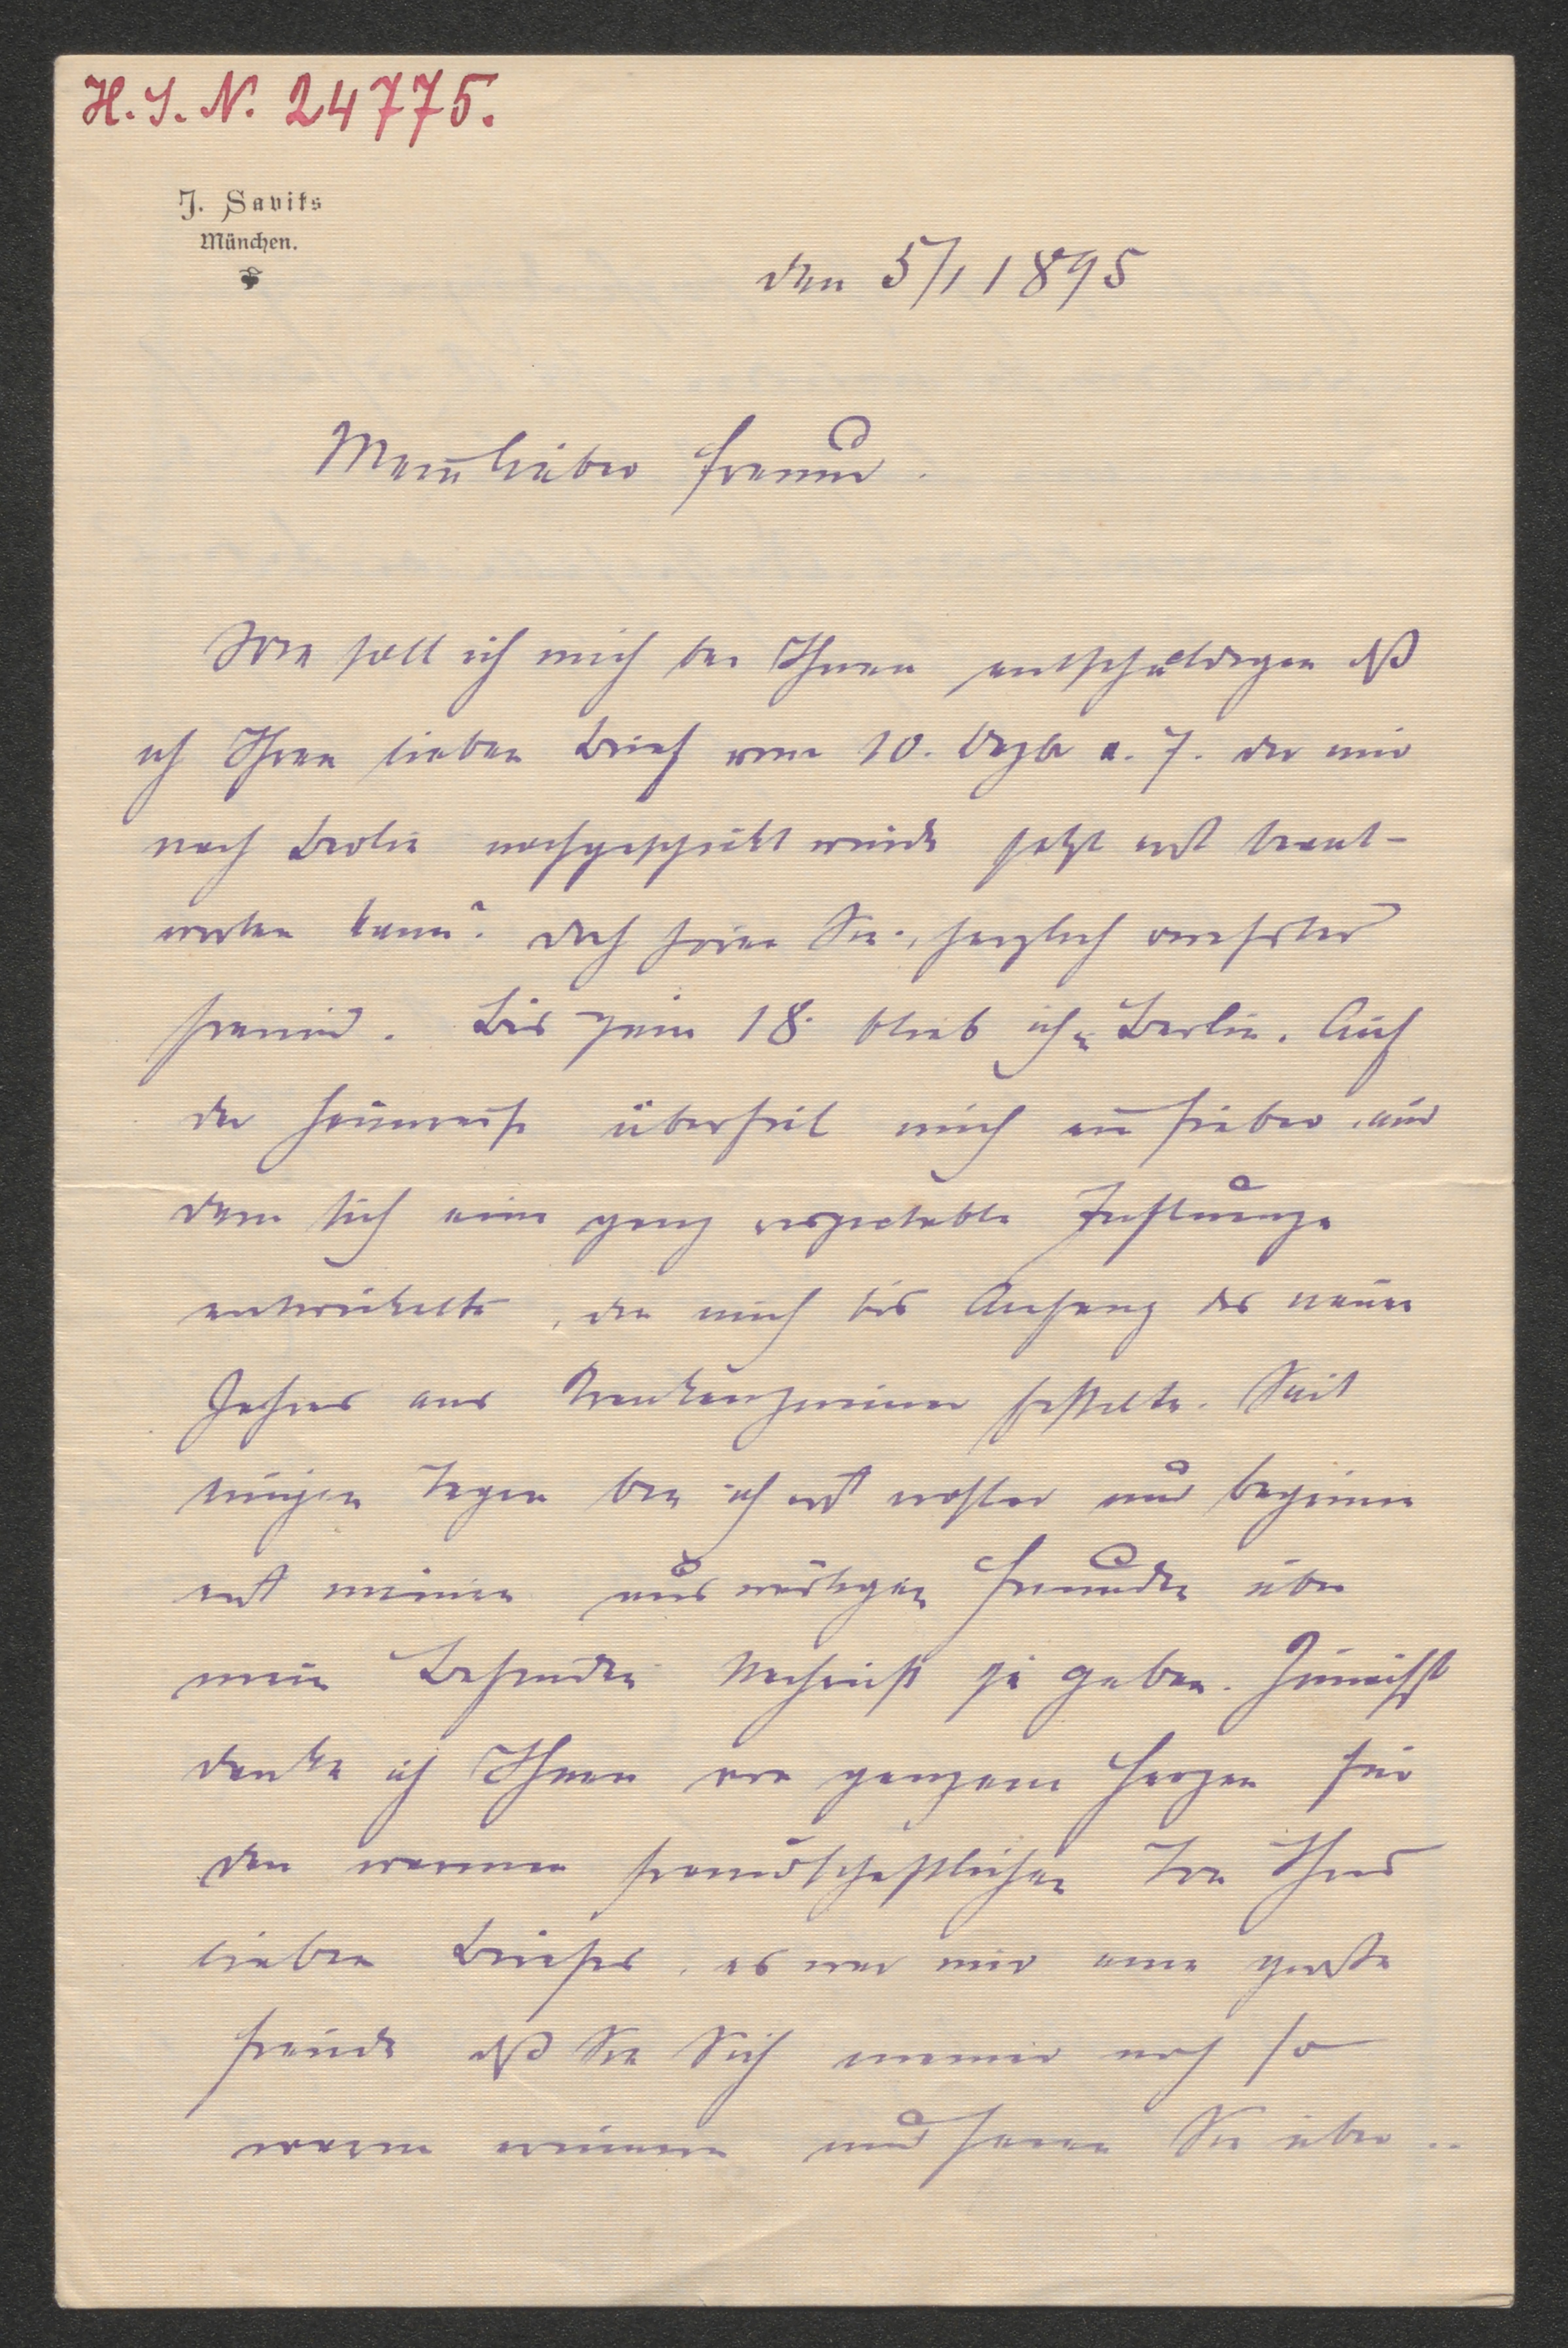 H. I. N. 24775.
J. Savits
München.
den 5/1 1895
Mein lieber Freund.
Wie soll ich mich bei Ihnen entschuldigen dß
ich Ihren lieben Brief vom 10. Dezbr v. J. der mir
nach Berlin nachgeschickt wurde jetzt erst beant-
worten kann? Doch hören Sie, herzlich verehrter
Freund. Bis zum 18. blieb ich in Berlin. Auf
der Heimreise überfiel mich ein Fieber, aus
dem sich eine ganz respectable Influenza
entwickelte, die mich bis Anfang des neuen
Jahres ans Krankenzimmer fesselte. Seit
einigen Tagen bin ich erst wohler und beginne
erst meinen auswärtigen Freunden über
mein Befinden Nachricht zu geben. Zunächst
danke ich Ihnen von ganzem Herzen für
den warmen freundschaftlichen Ton Ihres
lieben Briefes, es war mir eine große
Freude dß Sie Sich meiner noch so
warm erinnern und Ihnen Sie über